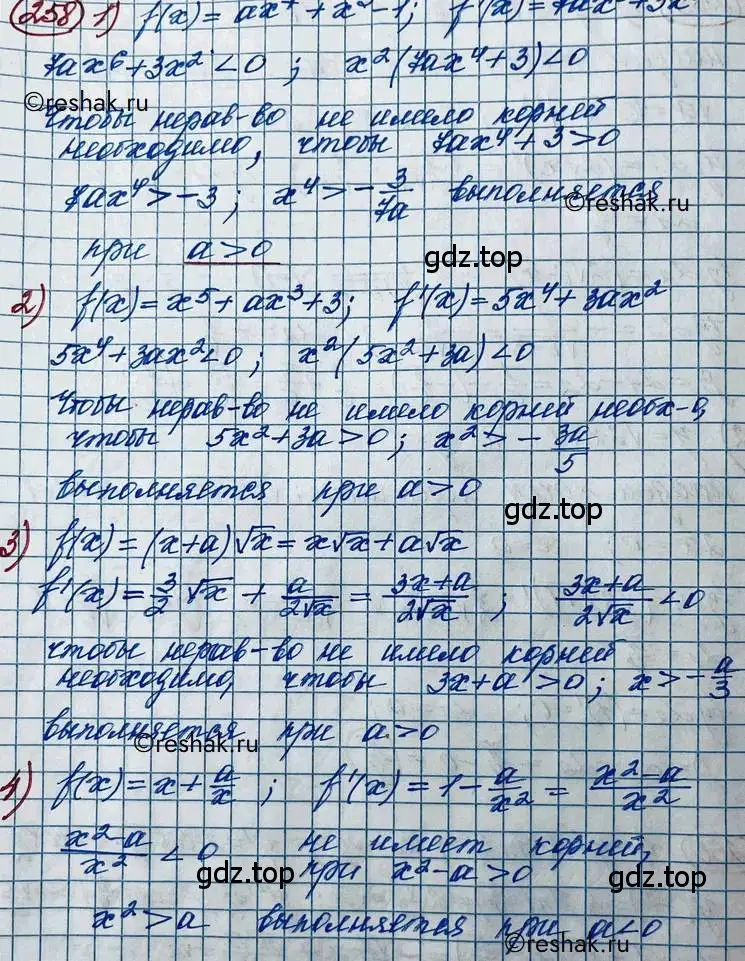 258 1) f(x) = ax⁷ + x³ - 1; f'(x) = 7ax⁶ + 3x²
7ax⁶ + 3x² < 0 ; x²(7ax⁴ + 3) < 0
©reshak.ru
Чтобы нерав-во не имело корней
необходимо, чтобы 7ax⁴ + 3 > 0
7ax⁴ > -3 ; x⁴ > - 3/7a выполняется
©reshak.ru
при a > 0
gdz.top
2) f(x) = x⁵ + ax³ + 3; f'(x) = 5x⁴ + 3ax²
5x⁴ + 3ax² < 0 ; x²(5x² + 3a) < 0
Чтобы нерав-во не имело корней необх-о,
чтобы 5x² + 3a > 0 ; x² > - 3a/5
выполняется при a > 0
gdz.top
3) f(x) = (x + a)√x = x√x + a√x
f'(x) = 3/2 √x + a/2√x = 3x+a/2√x ; 3x+a/2√x < 0
чтобы нерав-во не имело корней
необходимо, чтобы 3x + a > 0 ; x > - a/3
выполняется при a > 0
©reshak.ru
4) f(x) = x + a/x ; f'(x) = 1 - a/x² = x²-a/x²
x²-a/x² < 0 не имеет корней,
при x² - a > 0
gdz.top gdz.top
x² > a выполняется при a < 0
©reshak.ru